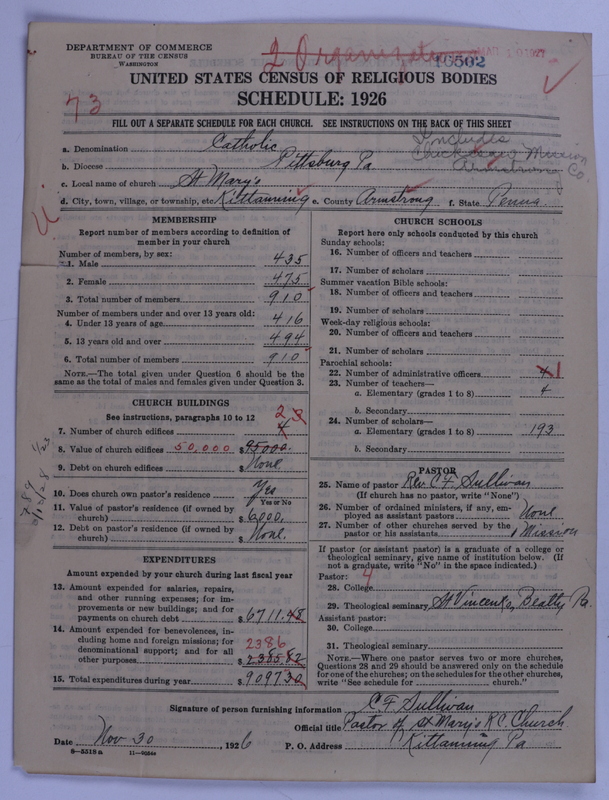 DEPARTMENT OF COMMERCE
BUREAU OF THE CENSUS
WASHINGTON
2 Organizations
MAR 10 1927
16502
UNITED STATES CENSUS OF RELIGIOUS BODIES
SCHEDULE: 1926
73
FILL OUT A SEPARATE SCHEDULE FOR EACH CHURCH. SEE INSTRUCTIONS ON THE BACK OF THIS SHEET
Includes
Mission
Armstrong Co.
a. Denomination Catholic
b. Diocese Pittsburg Pa
c. Local name of church St Mary's
d. City, town, village, or township, etc. Kittanning e. County Armstrong f. State Penna.
MEMBERSHIP
Report number of members according to definition of
member in your church
Number of members, by sex:
1. Male 435
2. Female 475
3. Total number of members 910
Number of members under and over 13 years old:
4. Under 13 years of age 416
5. 13 years old and over 494
6. Total number of members 910
NOTE.—The total given under Question 6 should be
the same as the total of males and females given under Question 3.
CHURCH BUILDINGS
See instructions, paragraphs 10 to 12
2
7. Number of church edifices 4
8. Value of church edifices 50,000 $ 95000.
9. Debt on church edifices $ None.
10. Does church own pastor's residence Yes
Yes or No
11. Value of pastor's residence (if owned by
church) $ 6000.
12. Debt on pastor's residence (if owned by
church) $ None.
EXPENDITURES
Amount expended by your church during last fiscal year
13. Amount expended for salaries, repairs,
and other running expenses; for im-
provements or new buildings; and for
payments on church debt $ 6711.48
14. Amount expended for benevolences, in-
cluding home and foreign missions; for
denominational support; and for all
other purposes $ 2385.82
2386
15. Total expenditures during year $ 9097.30
CHURCH SCHOOLS
Report here only schools conducted by this church
Sunday schools:
16. Number of officers and teachers
17. Number of scholars
Summer vacation Bible schools:
18. Number of officers and teachers
19. Number of scholars
Week-day religious schools:
20. Number of officers and teachers
21. Number of scholars
Parochial schools:
22. Number of administrative officers 1
23. Number of teachers—
a. Elementary (grades 1 to 8) 4
b. Secondary
24. Number of scholars—
a. Elementary (grades 1 to 8) 193
b. Secondary
PASTOR
25. Name of pastor Rev. C F Sullivan
(If church has no pastor, write "None")
26. Number of ordained ministers, if any, em-
ployed as assistant pastors None
27. Number of other churches served by the
pastor or his assistants 1 Mission
If pastor (or assistant pastor) is a graduate of a college or
theological seminary, give name of institution below. (If
not a graduate, write "No" in the space indicated.)
Pastor: 4
28. College
29. Theological seminary St Vincent, Beatty Pa.
Assistant pastor:
30. College
31. Theological seminary
NOTE.—Where one pastor serves two or more churches,
Questions 28 and 29 should be answered only on the schedule
for one of the churches; on the schedules for the other churches,
write "See schedule for church."
Signature of person furnishing information C F Sullivan
Official title Pastor of St Mary's R C. Church
Date Nov 30, 1926 P. O. Address Kittanning Pa
8—5518a 11—9084a